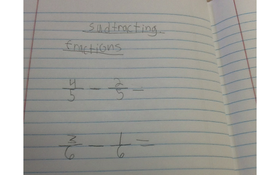 sadtracting
fractions
4/5 - 2/5 =
3/6 - 1/6 =